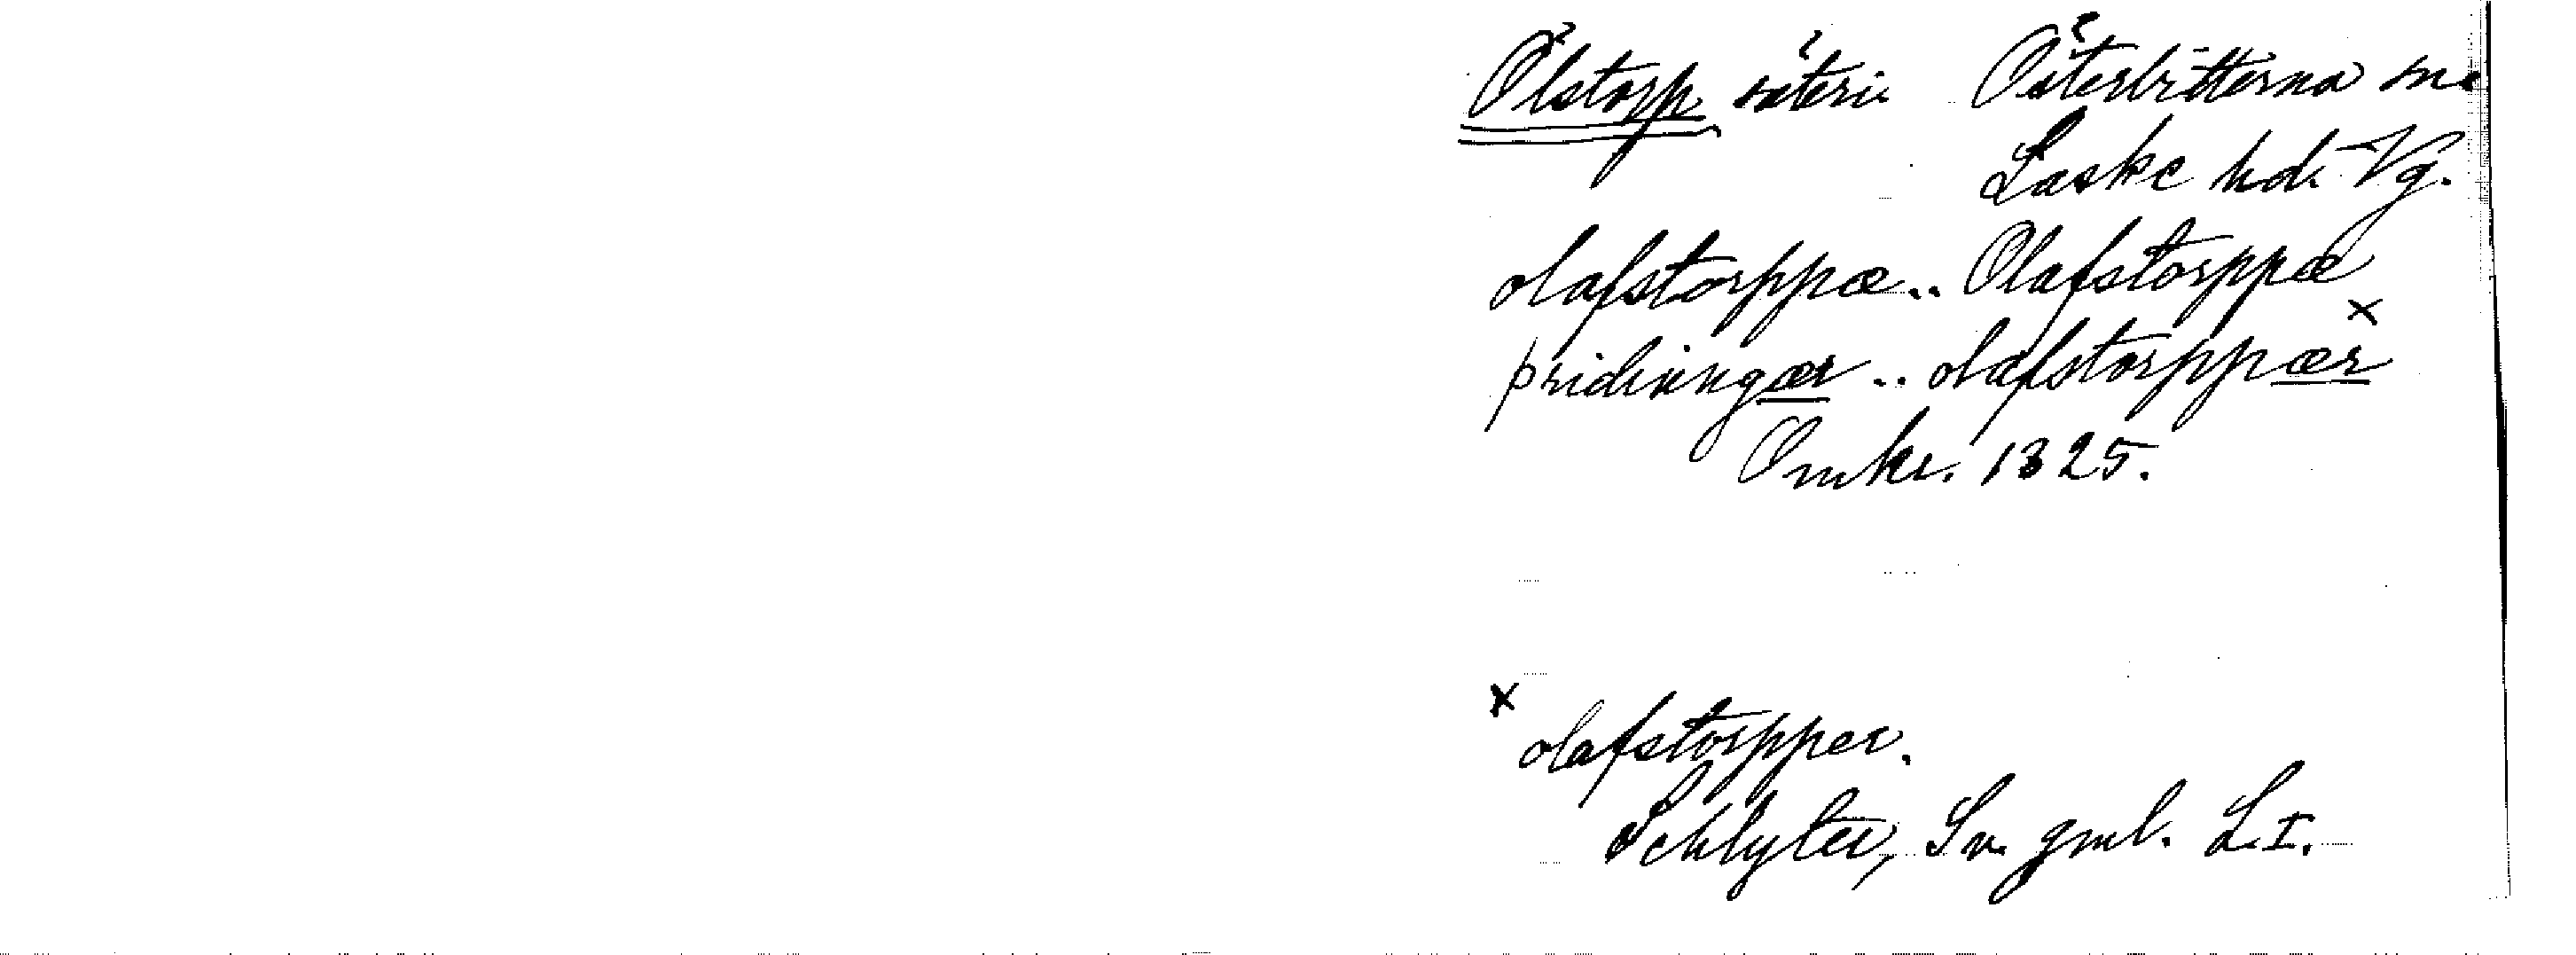 Ölstorp säteri Österbitterna sn
Laske hd. Vg.
olafstorppæ.. Olafstorppæ
þridiungær .. olafstorppær ×
Omkr. 1325.
× olafstorpper.
Schlyter, Sv. gml. L. I.